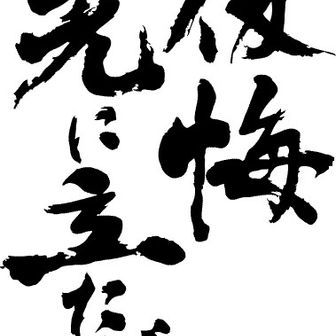 後悔
先に立た